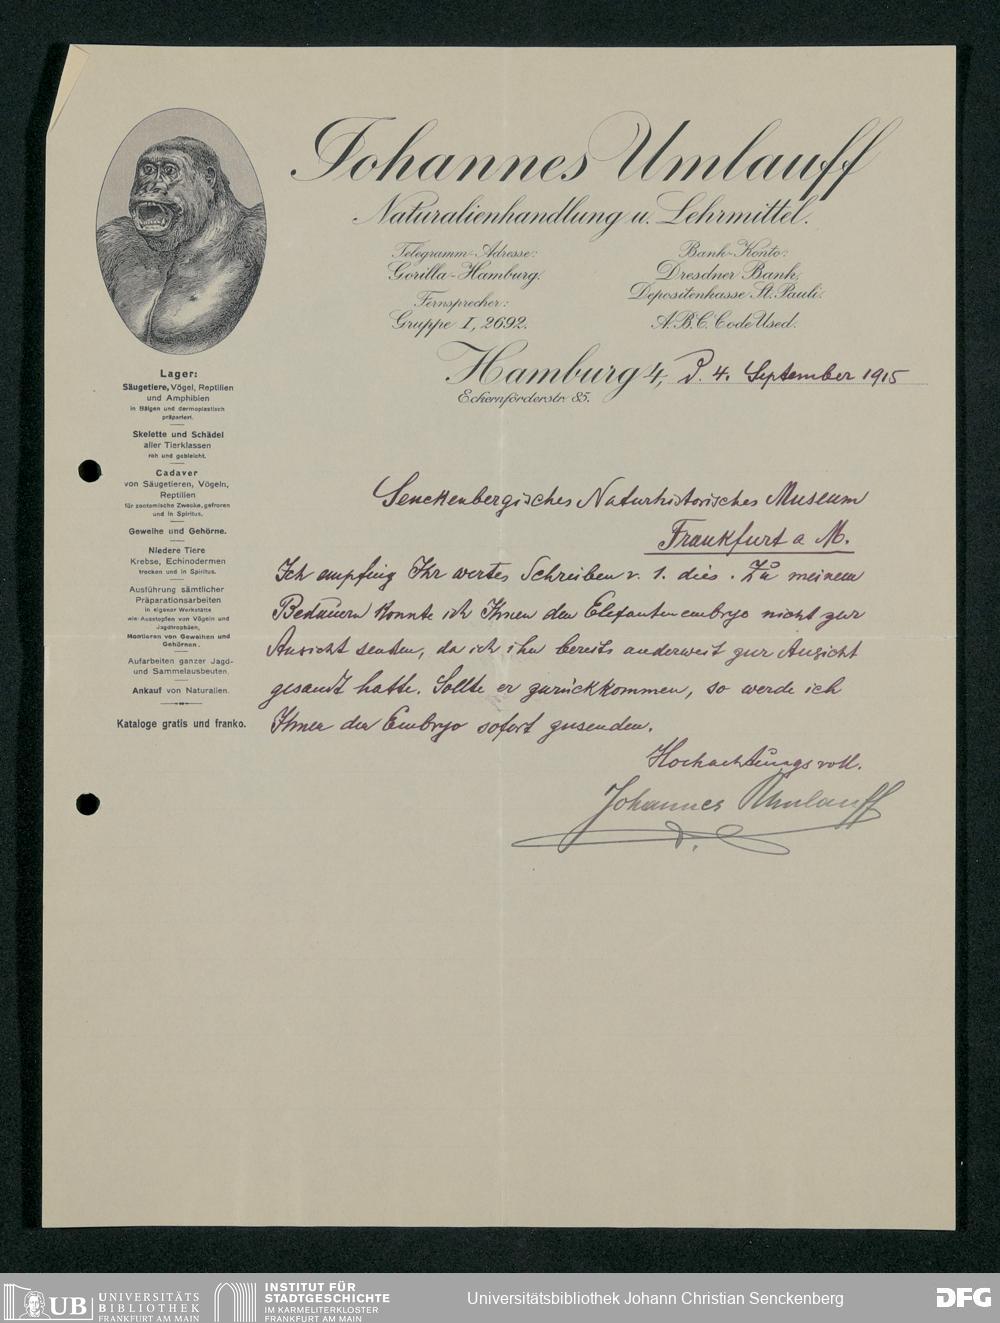 Johannes Umlauff
Naturalienhandlung u. Lehrmittel.
Telegramm-Adresse:
Gorilla-Hamburg.
Fernsprecher:
Gruppe I, 2692.
Bank-Konto:
Dresdner Bank,
Depositenkasse St. Pauli.
A.B.C. Code Used.
Hamburg 4, d. 4. September 1915
Eckernförderstr. 85.
Lager:
Säugetiere, Vögel, Reptilien
und Amphibien
in Bälgen und dermoplastisch
präpariert.
Skelette und Schädel
aller Tierklassen
roh und gebleicht.
Cadaver
von Säugetieren, Vögeln,
Reptilien
für zootomische Zwecke, gefroren
und in Spiritus.
Geweihe und Gehörne.
Niedere Tiere
Krebse, Echinodermen
trocken und in Spiritus.
Ausführung sämtlicher
Präparationsarbeiten
in eigener Werkstätte
wie Ausstopfen von Vögeln und
Jagdtrophäen,
Montieren von Geweihen und
Gehörnen.
Aufarbeiten ganzer Jagd-
und Sammelausbeuten.
Ankauf von Naturalien.
Kataloge gratis und franko.
Senckenbergisches Naturhistorisches Museum
Frankfurt a M.
Ich empfing Ihr wertes Schreiben v. 1. dies. Zu meinem
Bedauern konnte ich Ihnen den Elefantenembryo nicht zur
Ansicht senden, da ich ihn bereits anderweit zur Ansicht
gesandt hatte. Sollte er zurückkommen, so werde ich
Ihnen den Embryo sofort zusenden.
Hochachtungsvoll.
Johannes Umlauff
UB UNIVERSITÄTS
BIBLIOTHEK
FRANKFURT AM MAIN
INSTITUT FÜR
STADTGESCHICHTE
IM KARMELITERKLOSTER
FRANKFURT AM MAIN
Universitätsbibliothek Johann Christian Senckenberg
DFG